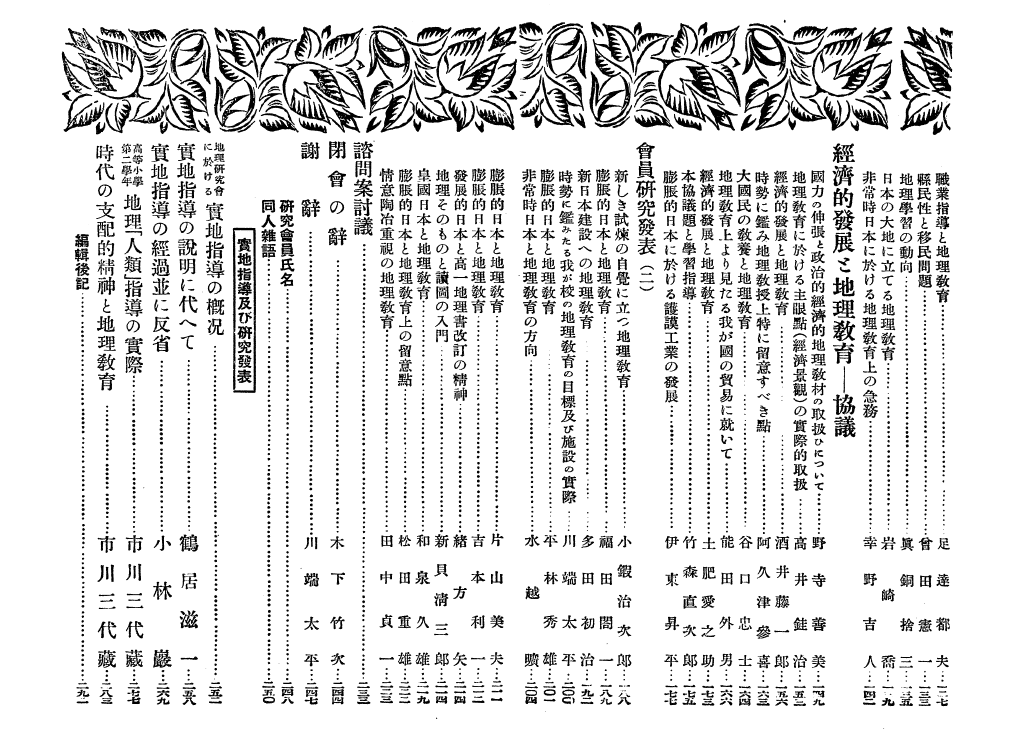 職業指導と地理敎育 足達都夫 一二七
縣民性と移民問題 曾田憲一 一三三
地理學習の動向 眞銅捨三 一三五
日本の大地に立てる地理敎育 岩崎喬 一三九
非常時日本に於ける地理敎育上の急務 幸野吉人 一四二
經濟的發展と地理敎育──協議
國力の伸張と政治的經濟的地理敎材の取扱ひについて 野寺善美 一四九
地理敎育に於ける主眼點(經濟景觀)の實際的取扱 高井銈治 一五三
經濟的發展と地理敎育 酒井藤一郎 一五六
時勢に鑑み地理敎授上特に留意すべき點 阿久津參喜 一六三
大國民の敎養と地理敎育 谷口忠士 一六四
地理敎育上より見たる我が國の貿易に就いて 能田外男 一六六
經濟的發展と地理敎育 土肥愛之助 一七三
本協議題と學習指導 竹森直次郎 一七五
膨脹的日本に於ける護謨工業の發展 伊東昇平 一七七
會員硏究發表(二)
新しき試煉の自覺に立つ地理敎育 小鍜治次郎 一八六
膨脹的日本と地理敎育 福田閤一 一八九
新日本建設への地理敎育 多田初治 一九二
時勢に鑑みたる我が校の地理敎育の目標及び施設の實際 川端太平 二〇〇
膨脹的日本と地理敎育 平林秀雄 二〇一
非常時日本と地理敎育の方向 水越曠 二〇四
膨脹的日本と地理敎育 片山美夫 二一一
膨脹的日本と地理敎育 吉本利一 二一二
發展的日本と高一地理書改訂の精神 緖方矢 二一四
地理そのものと讀圖の入門 新貝淸三郎 二一四
皇國日本と地理敎育 和泉久雄 二一九
膨脹的日本と地理敎育上の留意點 松田重雄 二二二
情意陶冶重視の地理敎育 田中貞一 二二三
諮問案討議 二三三
閉會の辭 木下竹次 二四四
謝辭 川端太平 二四七
硏究會員氏名 二四八
同人雜語 二五〇
實地指導及び硏究發表
地理硏究會に於ける 實地指導の槪况 二五二
實地指導の說明に代へて 鶴居滋一 二五八
實地指導の經過並に反省 小林巖 二六九
高等小學第二學年 地理「人類」指導の實際 市川三代藏 二七七
時代の支配的精神と地理敎育 市川三代藏 二八三
編輯後記 二九一